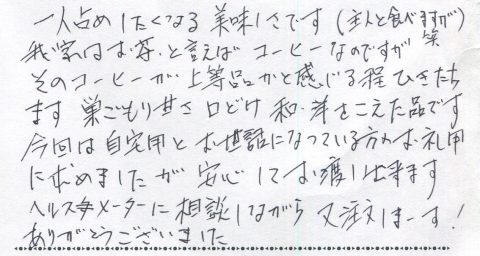 一人占めしたくなる美味しさです（主人と食べますが）笑
我家はお茶と言えばコーヒーなのですが
そのコーヒーが上等品かと感じる程ひきたち
ます 巣ごもり 甘さ 口どけ 和・洋をこえた品です
今回は自宅用とお世話になっている方のお礼用
に求めましたが 安心してお渡し出来ます
ヘルスメーターに相談しながら 又注文しまーす！
ありがとうございました